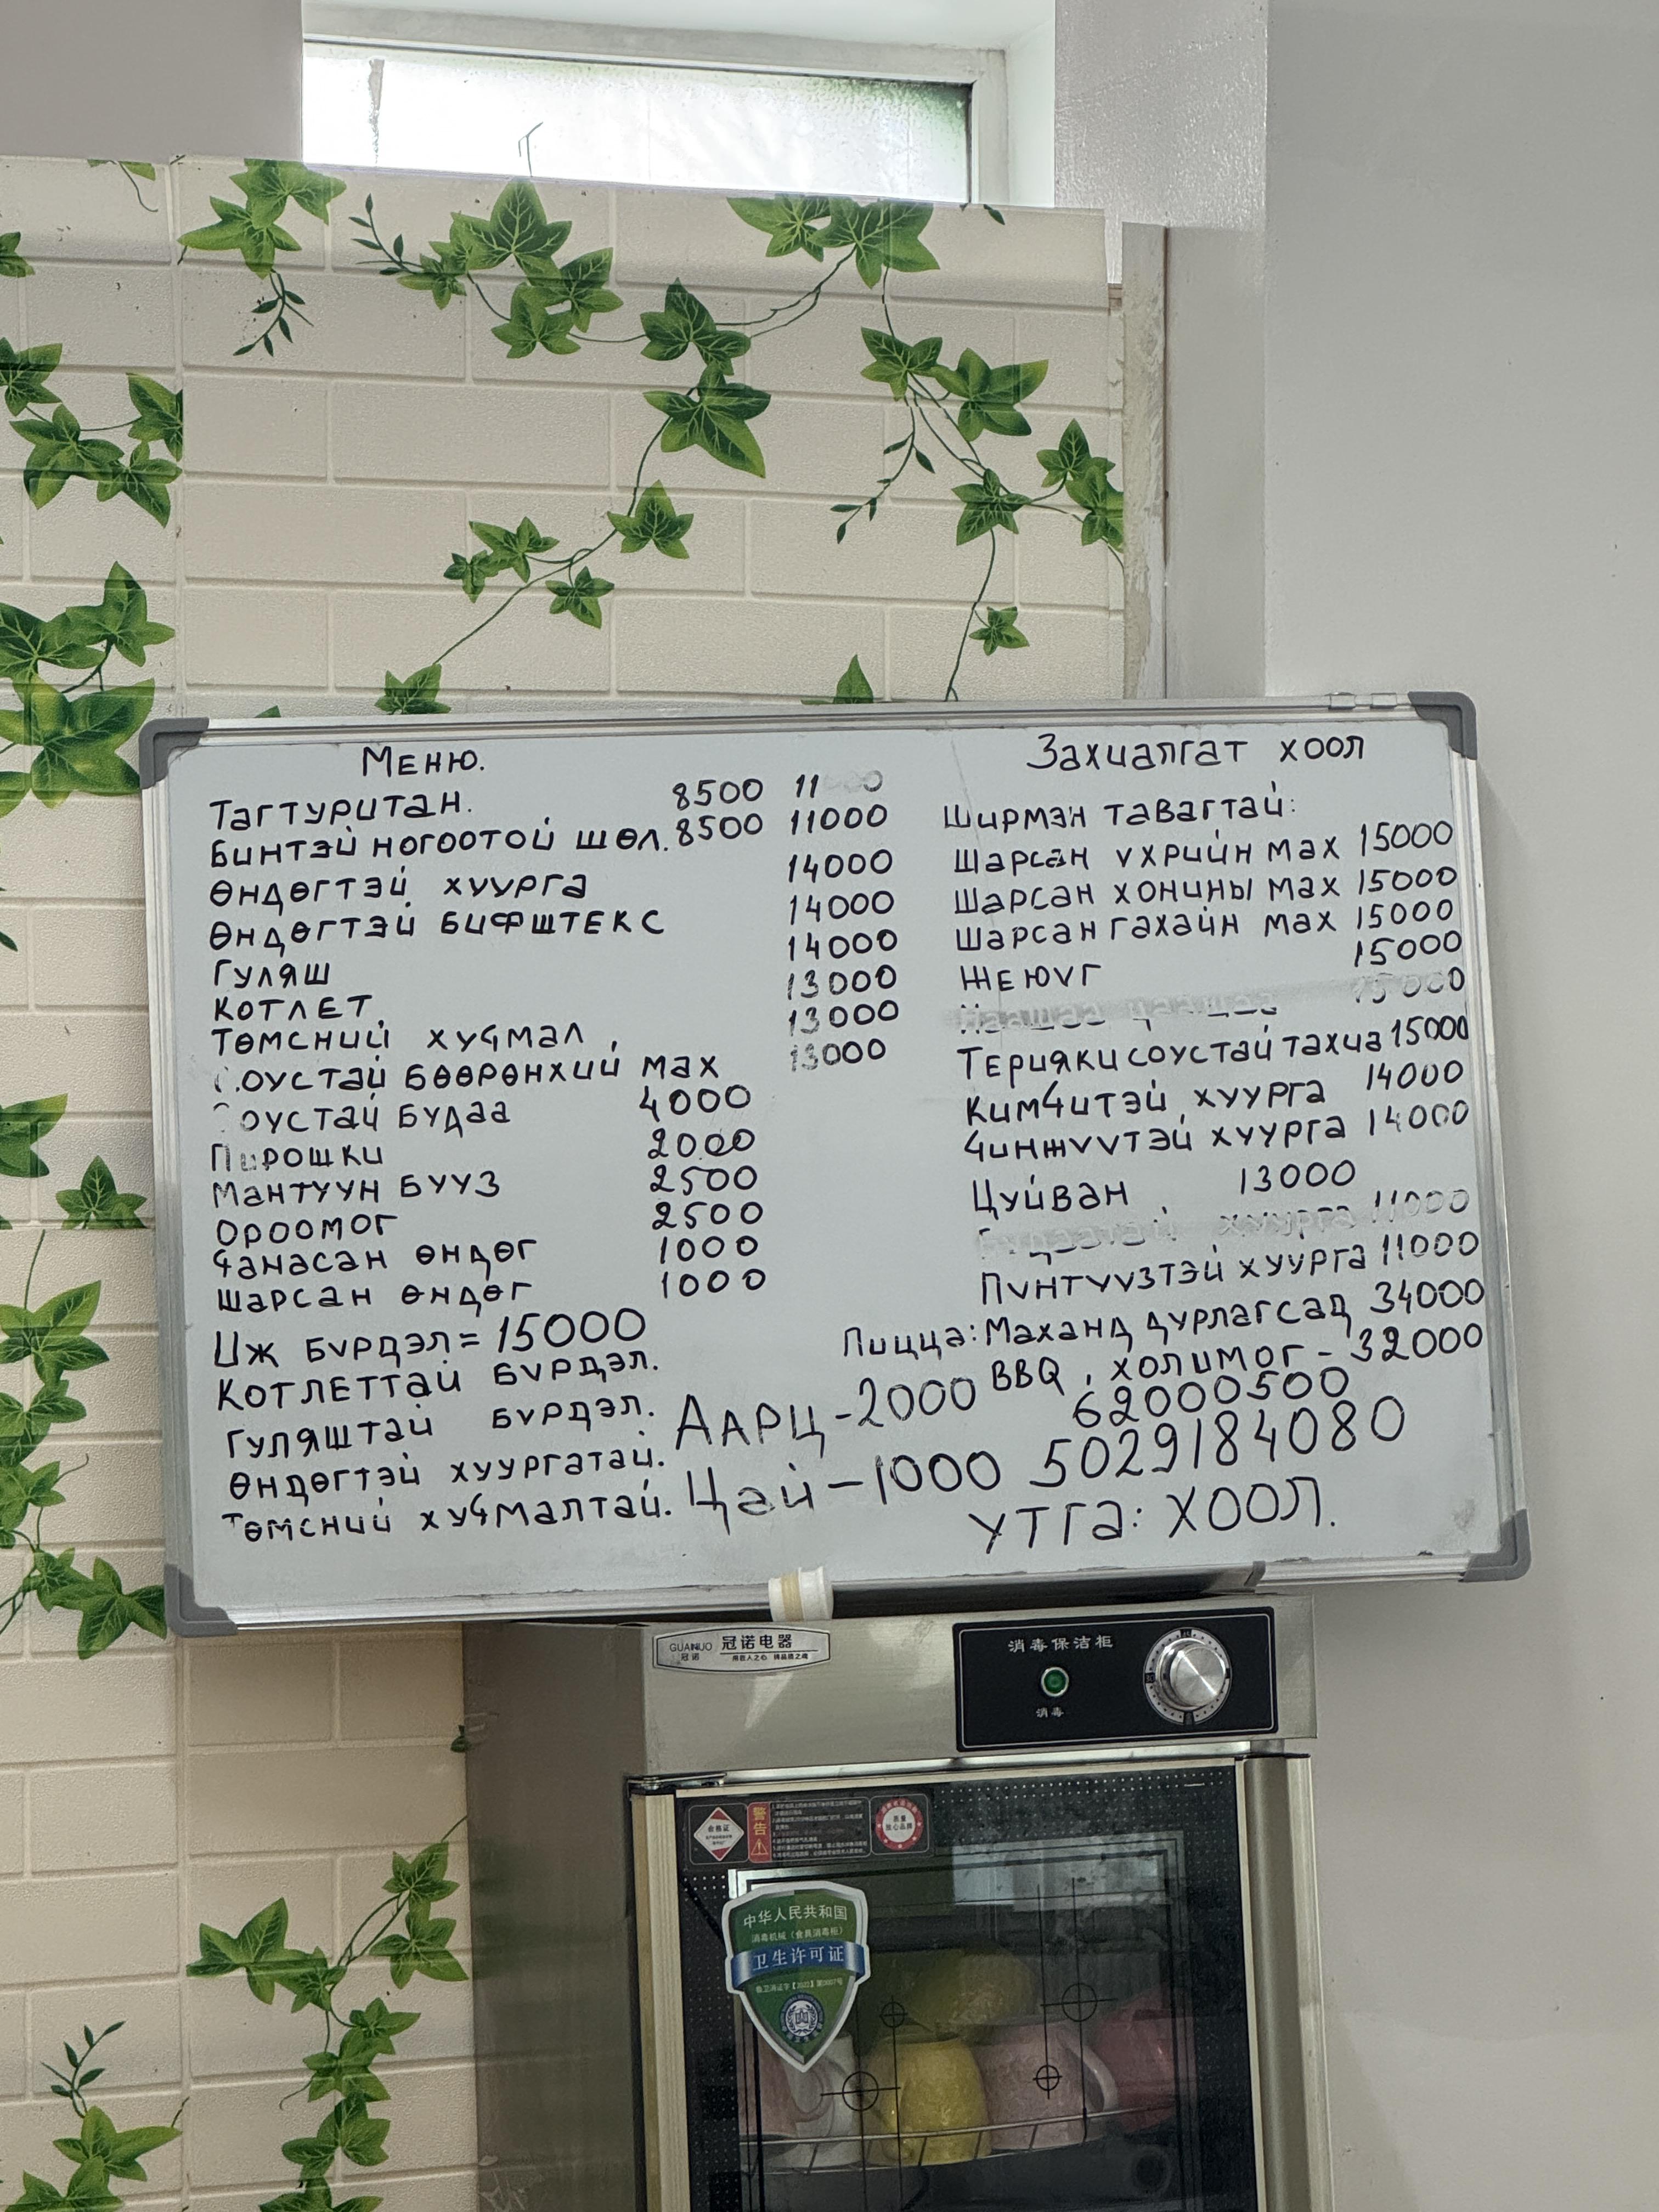 Меню.
Тагтуритан. 8500 11
Бинтэй ногоотой шөл. 8500 11000
Өндөгтэй хуурга 14000
Өндөгтэй бифштекс 14000
Гуляш 14000
Котлет. 13000
Төмсний хучмал, 13000
Соустай бөөрөнхий мах 13000
Соустай будаа 4000
Пирошки 2000
Мантуун бууз 2500
Ороомог 2500
Чанасан өндөг 1000
Шарсан өндөг 1000
Иж бүрдэл = 15000
Котлеттай бүрдэл.
Гуляштай бүрдэл.
Өндөгтэй хуургатай.
Төмсний хучмалтай.
Аарц - 2000
Цай - 1000
Захиалгат хоол
Ширмэн тавагтай:
Шарсан үхрийн мах 15000
Шарсан хонины мах 15000
Шарсан гахайн мах 15000
Жеюүг 15000
15000
Терияки соустай тахиа 15000
Кимчитэй хуурга 14000
Чинжүүтэй хуурга 14000
Цуйван 13000
хуурга 11000
Пүнтүүзтэй хуурга 11000
Пицца: Маханд дурлагсад 34000
BBQ, холимог - 32000
62000500
5029184080
Утга: хоол.
GUANUO 冠诺
冠诺电器
消毒保洁柜
消毒
合格证
警告
质量放心品牌
中华人民共和国
消毒机械（食具消毒柜）
卫生许可证